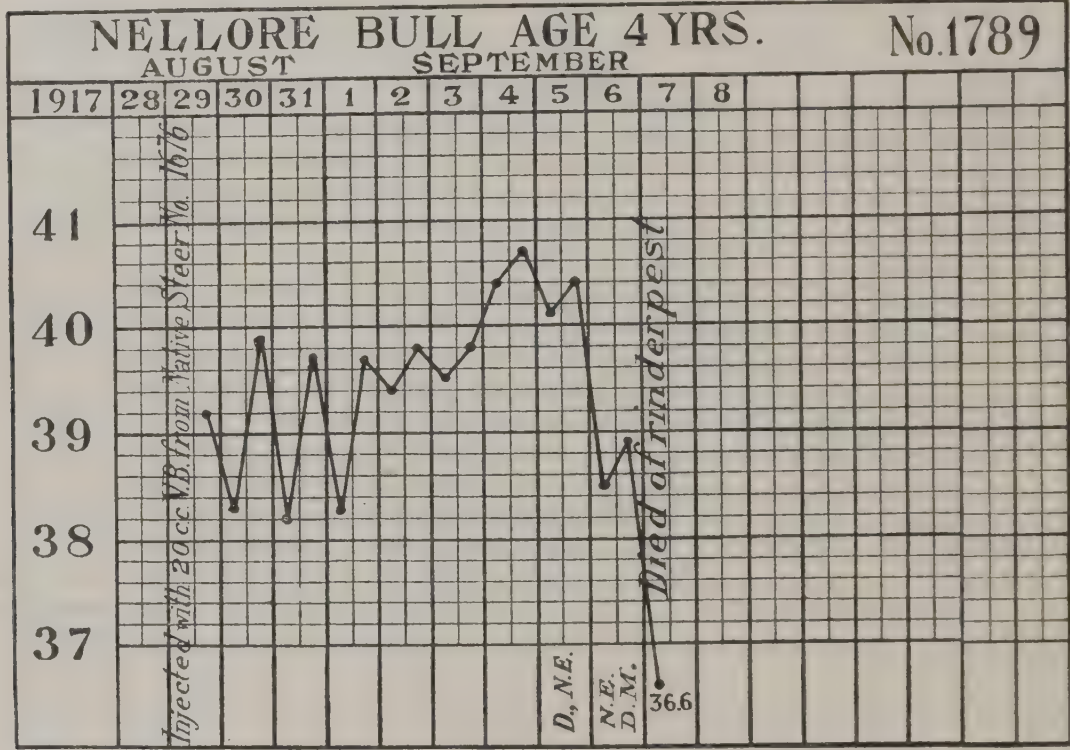 NELLORE BULL AGE 4 YRS. No. 1789
AUGUST SEPTEMBER
1917 28 29 30 31 1 2 3 4 5 6 7 8
41
40
39
38
37
Injected with 20 cc. V.B. from Native Steer No. 1676
D., N.E.
N.E.
D. M.
Died of rinderpest
36.6